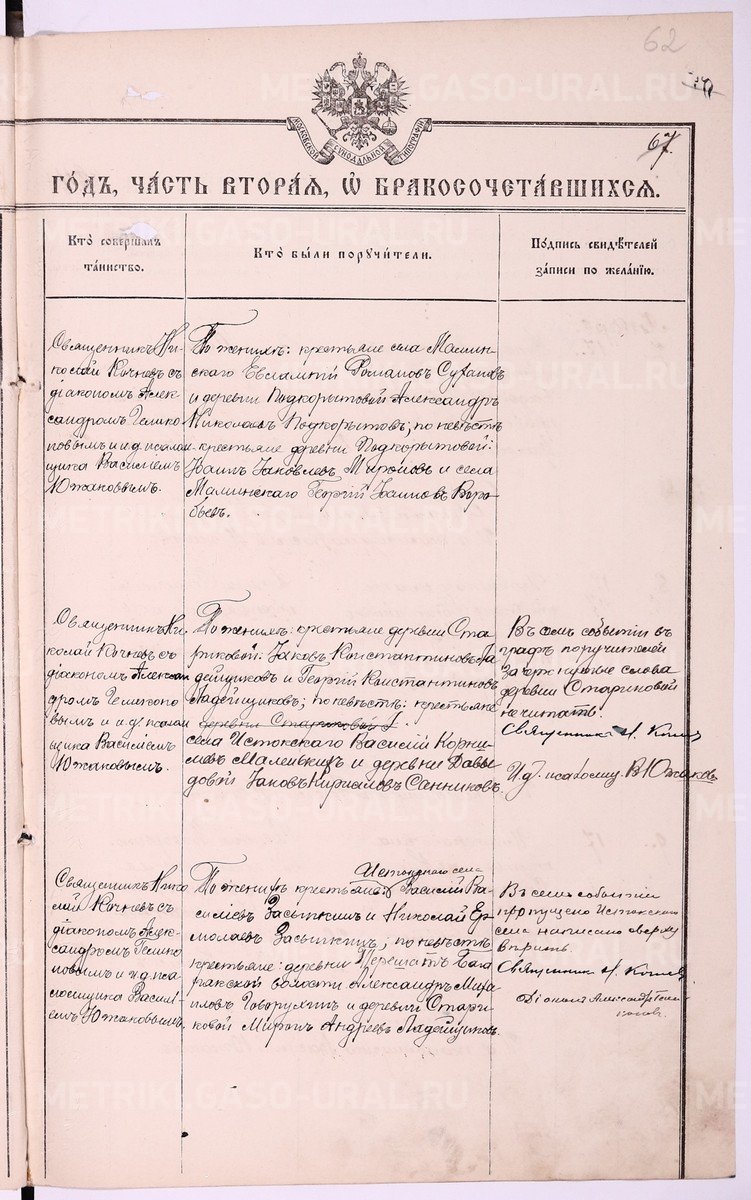 62
67.
МОСКОВСКОЙ СѴНОДАЛЬНОЙ ТИПОГРАФІИ
ГО́ДЪ, ЧА́СТЬ ВТОРА́Я, Ѽ БРАКОСОЧЕТА́ВШИХСЯ.
Кто̀ соверша́лъ
та́инство.
Кто̀ бы́ли порꙋчи́тели.
По́дпись свидѣ́телей
за́писи по жела́нїю.
Священникъ Ни-
колай Кочневъ съ
діакономъ Алек-
сандромъ
и и.д. псалом-
щика Василіемъ
Южаковымъ.
По женихѣ: крестьяне села Мамин-
скаго Евлампій Романовъ Сухановъ
и деревни Подкорытовой Александръ
Николаевъ Подкорытовъ; по невѣстѣ
крестьяне деревни Подкорытовой:
Іоаннъ Іаковлевъ Мироновъ и села
Маминскаго Георгій Іоанновъ Воро-
бьевъ.
Священникъ Ни-
колай Кочневъ съ
діакономъ Алексан-
дромъ
и и.д. псалом-
щика Василіемъ
Южаковымъ.
По женихѣ: крестьяне деревни Ста-
риковой: Іаковъ Константиновъ Ла-
дейщиковъ и Георгій Константиновъ
Ладейщиковъ; по невѣстѣ: крестьяне
деревни Стариковой
села Истокскаго Василій Корни-
ловъ и деревни Давы-
довой Іаковъ Кирилловъ Санниковъ.
Въ семъ событіи въ
графѣ поручителей
зачеркнутые слова
деревни Стариковой
не читать.
Священникъ Н. Кочневъ
И.д. псаломщ. В Южаковъ
Священникъ Нико-
лай Кочневъ съ
діакономъ Алек-
сандромъ
и и.д. пса-
ломщика Васил-
емъ Южаковымъ.
Истокскаго села
По женихѣ крестьяне: Василій Ва-
сильевъ Засыпкинъ и Николай Ер-
молаевъ Засыпкинъ; по невѣстѣ
крестьяне: деревни Бага-
рякской волости Александръ Михаи-
ловъ Говорухинъ и деревни Стари-
ковой Миронъ Андреевъ Ладейщиковъ.
Въ семъ событіи
пропущено Истокскаго
села написано сверху
вѣрить.
Священникъ Н. Кочневъ
Діаконъ Александръ
METRIKI.GASO-URAL.RU